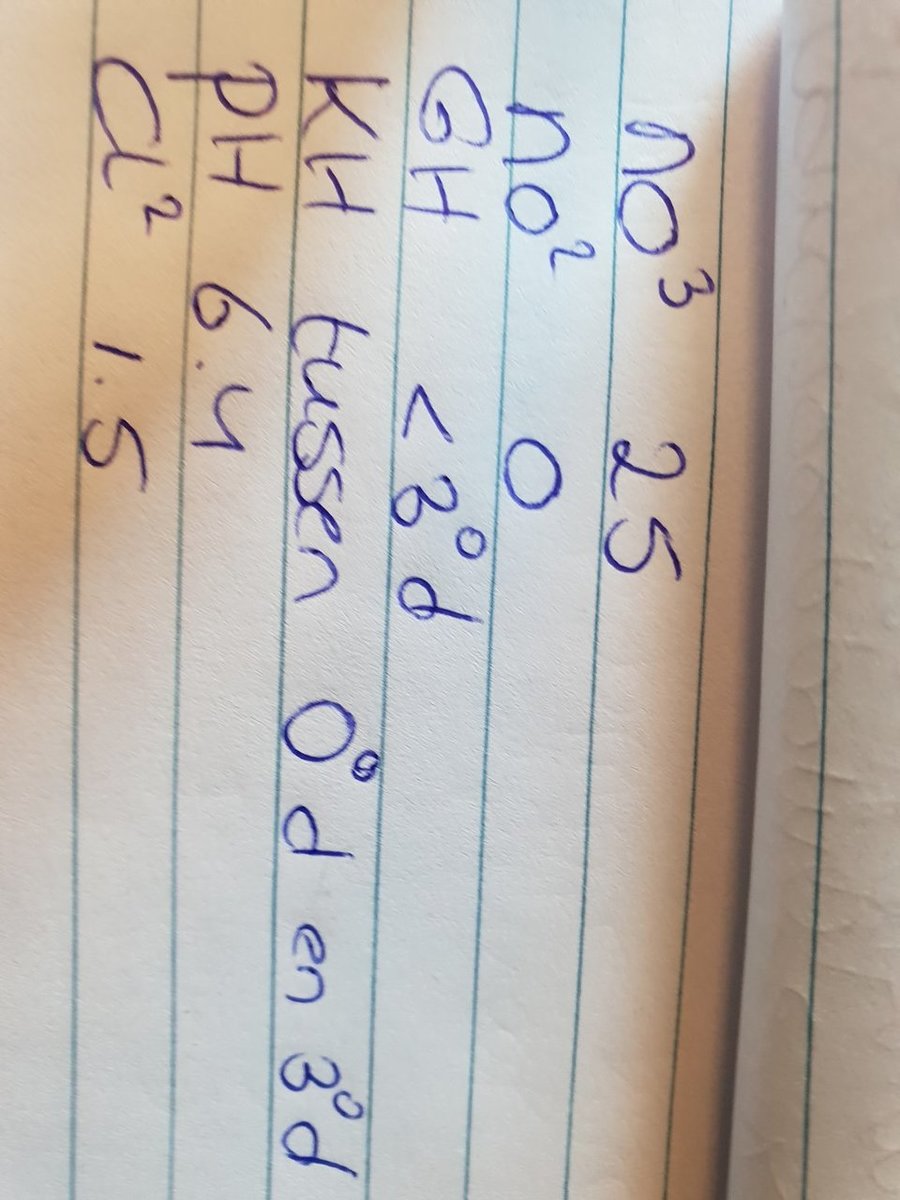 no³ 25
no² 0
GH < 3°d
KH tussen 0°d en 3°d
pH 6.4
Cl² 1.5